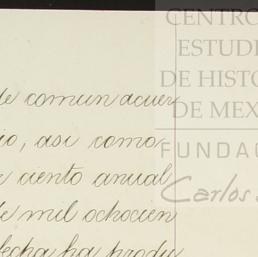 CENTRO
ESTUDI
DE HISTO
DE MEX
FUNDAC
Carlos
de comun acuer
io, asi como
e ciento anual
de mil ochocien
fecha ha produ